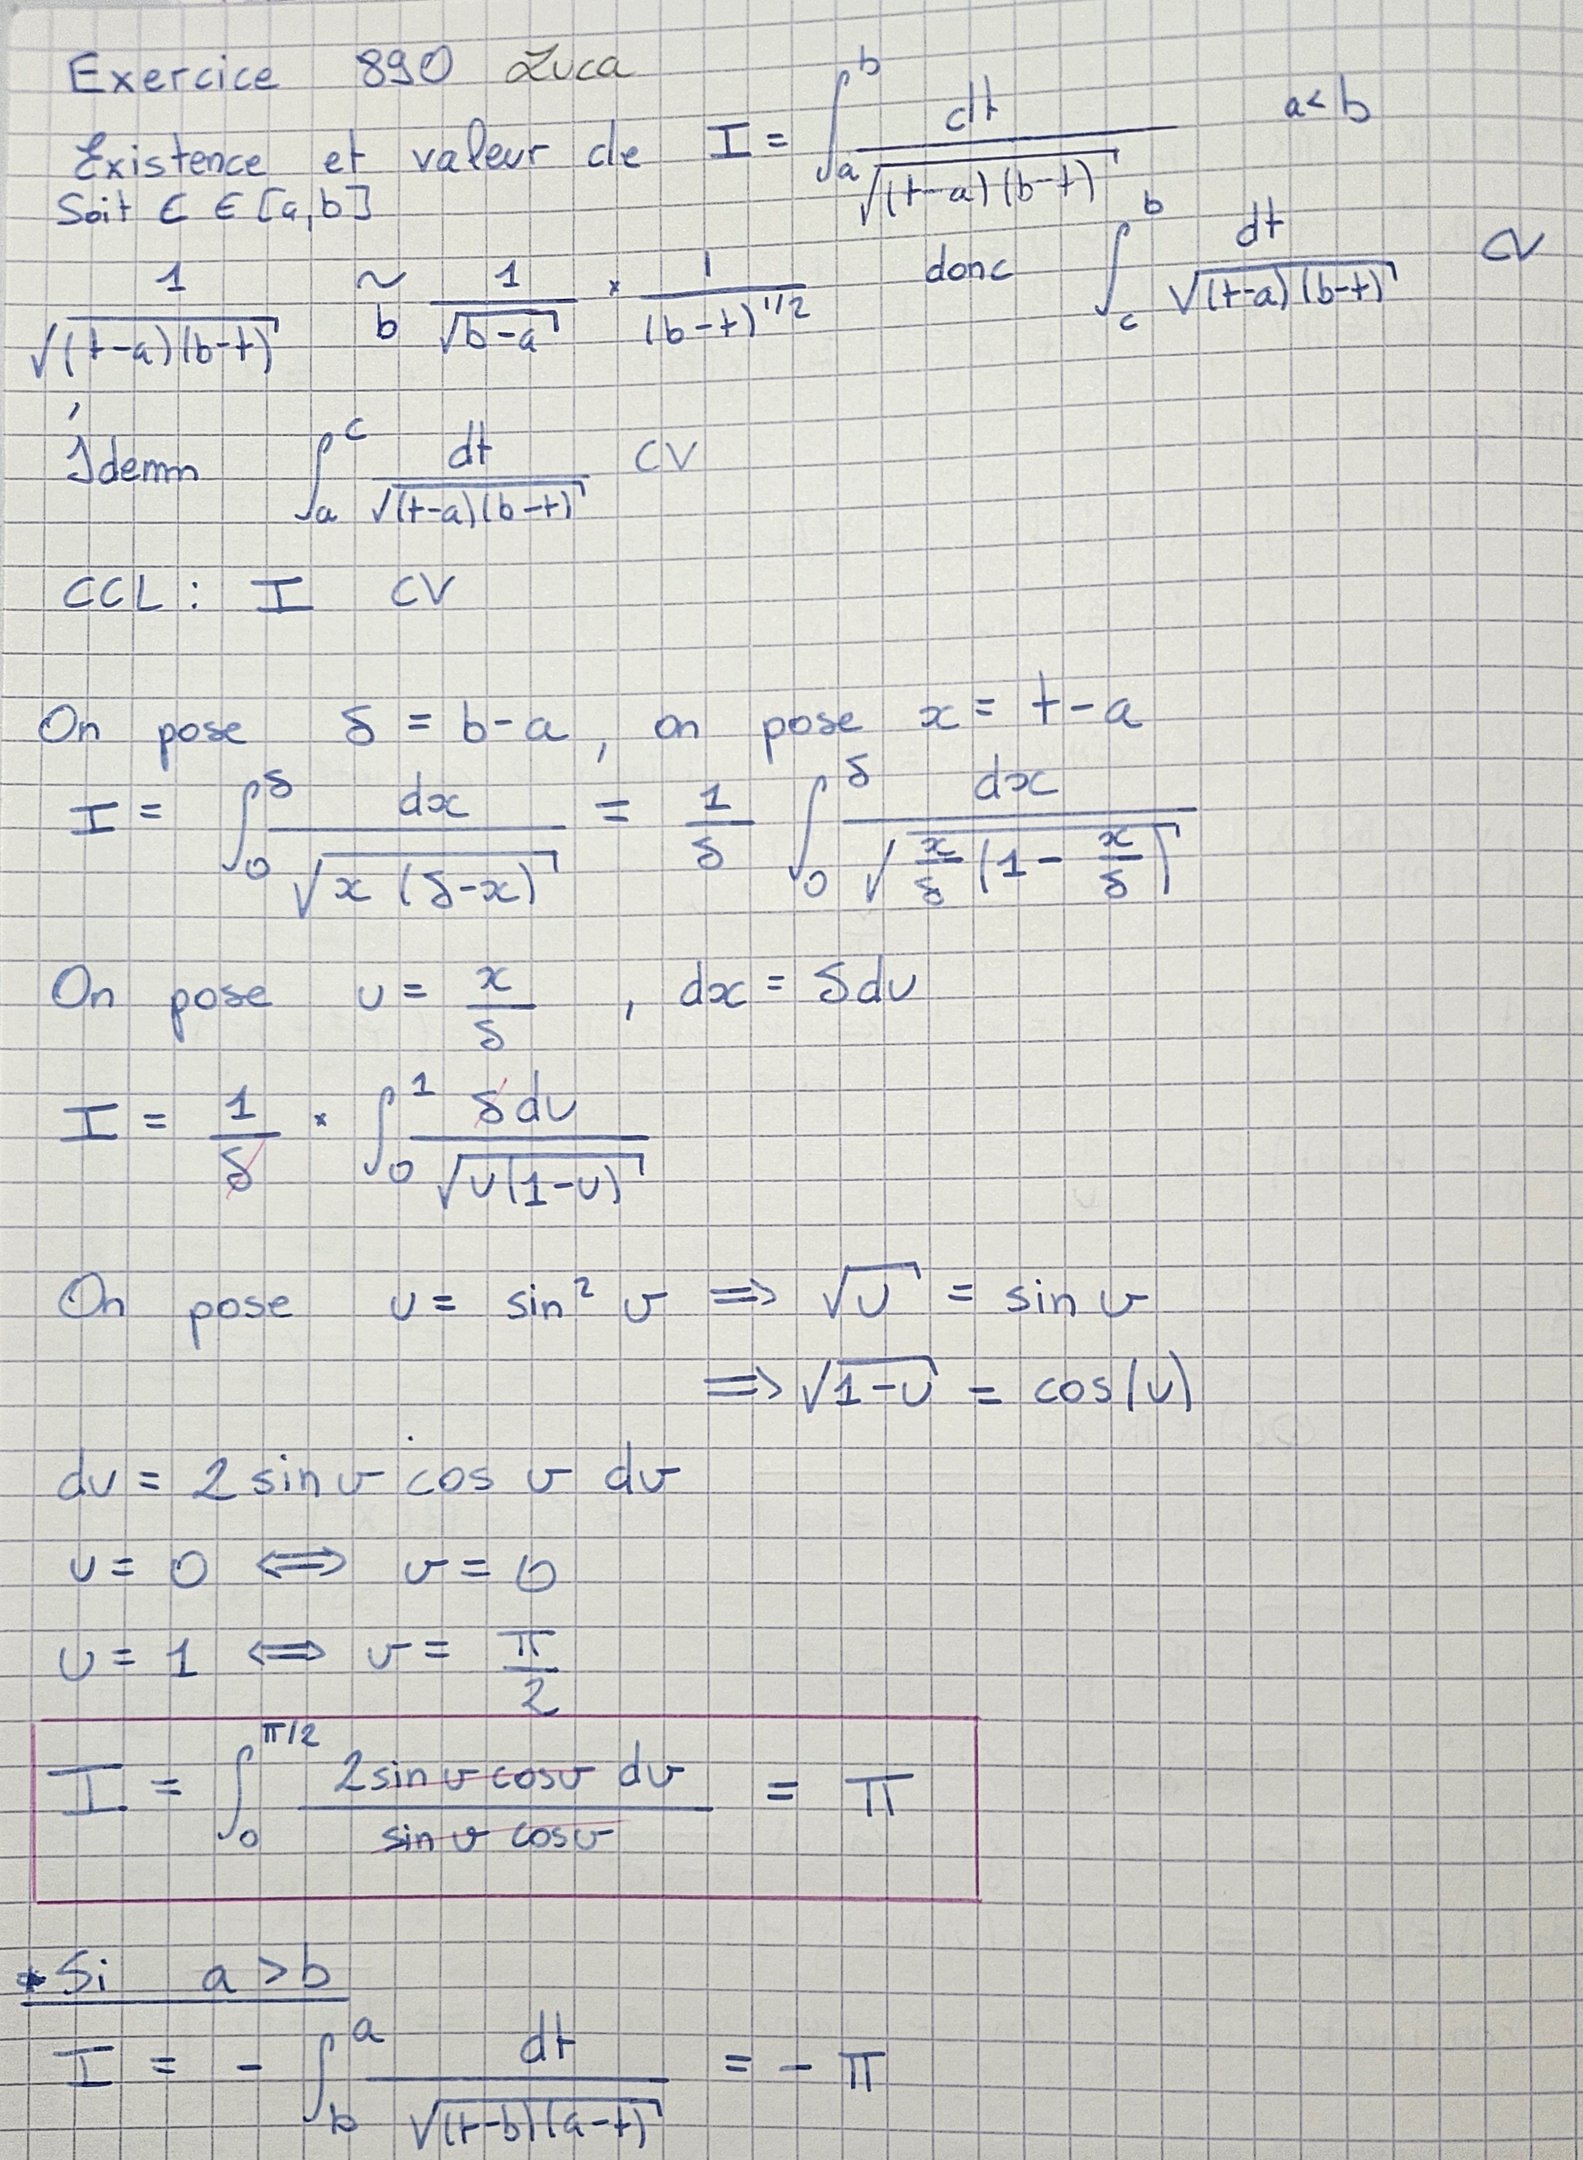 Exercice 890 Luca
Existence et valeur de I = ∫_a^b dt / √((t-a)(b-t)) a < b
Soit c ∈ [a,b]
1 / √((t-a)(b-t)) ~_b 1/√(b-a) × 1/(b-t)^1/2 donc ∫_c^b dt / √((t-a)(b-t)) CV
Idemm ∫_a^c dt / √((t-a)(b-t)) CV
CCL : I CV
On pose δ = b-a, on pose x = t-a
I = ∫_0^δ dx / √(x(δ-x)) = 1/δ ∫_0^δ dx / √(x/δ (1 - x/δ))
On pose u = x/δ , dx = δdu
I = 1/δ × ∫_0^1 δdu / √(u(1-u))
On pose u = sin² v ⟹ √u = sin v
⟹ √(1-u) = cos(v)
du = 2 sin v cos v dv
u = 0 ⟺ v = 0
u = 1 ⟺ v = π/2
I = ∫_0^π/2 2 sin v cos v dv / sin v cos v = π
* Si a > b
I = - ∫_b^a dt / √((t-b)(a-t)) = - π